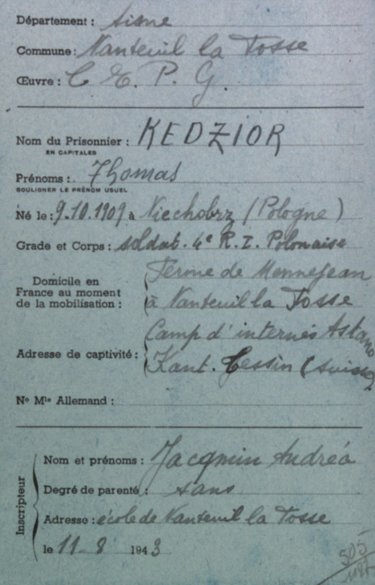 Département : Aisne
Commune : Nanteuil la Fosse
Œuvre : C E. P. G.
Nom du Prisonnier : KEDZIOR
EN CAPITALES
Prénoms : Thomas
SOULIGNER LE PRÉNOM USUEL
Né le : 9.10.1909 à Niechobrz (Pologne)
Grade et Corps : soldat. 4e R. I. Polonaise
Domicile en France au moment de la mobilisation : Ferme de Mennejean
à Nanteuil la Fosse
Adresse de captivité : Camp d'internés Astano
Kant. Cessin (Suisse)
No Mle Allemand :
Inscripteur
Nom et prénoms : Jacqmin Andréa
Degré de parenté : sans
Adresse : école de Nanteuil la Fosse
le 11-8 1943
505